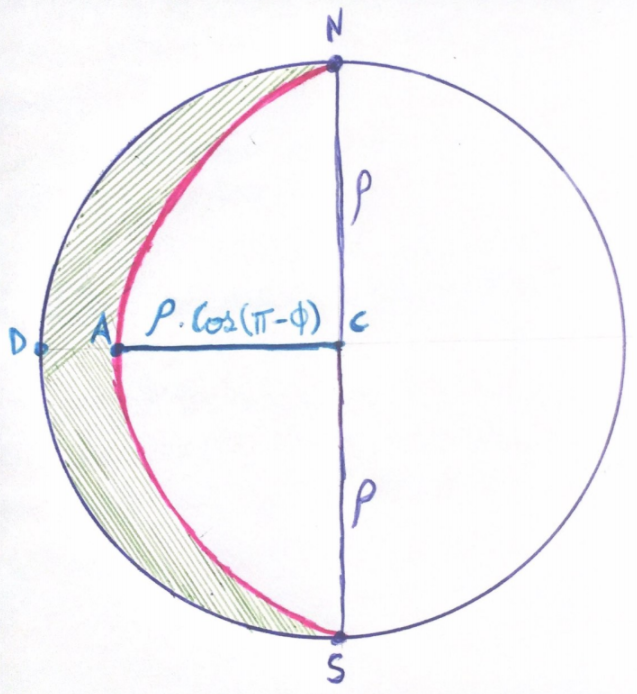 N
ρ
D A ρ.Cos(π-φ) C
ρ
S